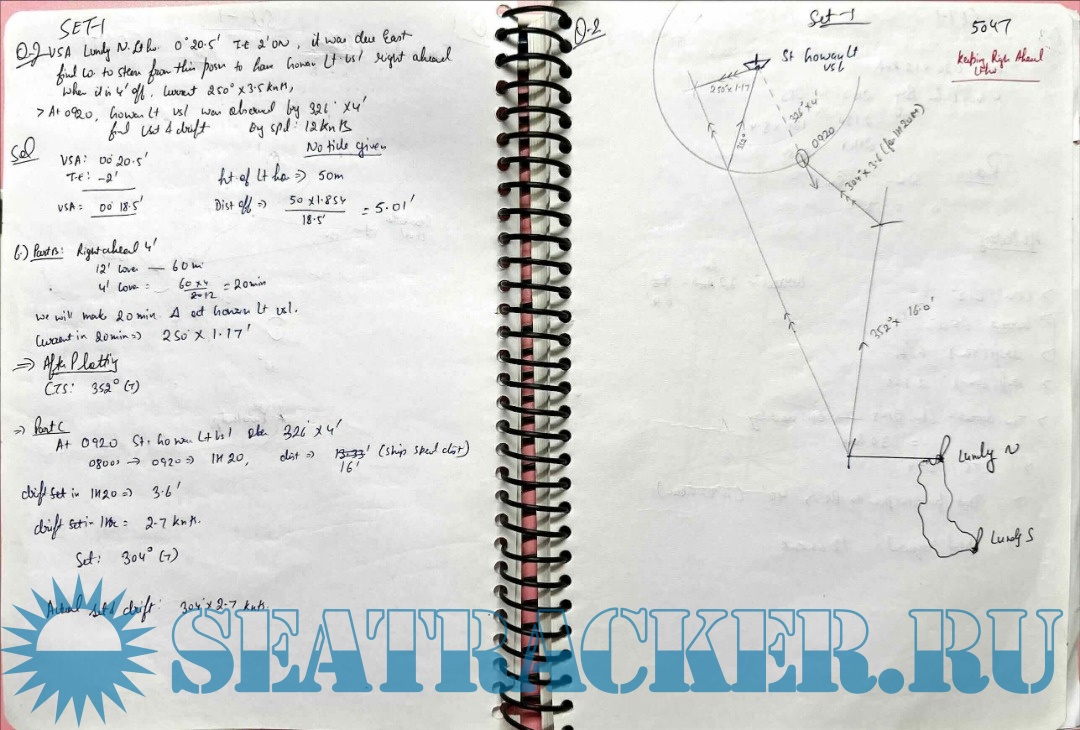 SET-1
Q-2 VSA Lundy N. Lt ho. 0° 20.5' I.E 2' ON, it was due East
find co. to steer from this posn to have Gowan Lt vsl right ahead
when it is 4' off. Current 250° x 3.5 knts,
> At 0920, Gowan Lt vsl was observed by 326° x 4'
find set & drift Og spd: 12 knts
No tide given
Sol
VSA: 00° 20.5'
I.E: -2'
VSA = 00° 18.5'
ht of Lt ho => 50m
Dist off => 50 x 1.854 / 18.5' = 5.01'
Part B: Right ahead 4'
12' cover — 60 mi
4' cover = 60 x 4 / 12 = 20 min
we will make 20 min Δ at Gowan Lt vsl.
Current in 20 min => 250° x 1.17'
=> After Plotting
CTS: 352° (T)
=> Part C
At 0920 St. Gowan Lt vsl 326° x 4'
0800 → 0920 => 1H 20, dist => 13.33' (ship speed dist)
16'
drift set in 1H20 => 3.6'
drift set in 1Hr = 2.7 knts.
Set: 304° (T)
Actual set & drift: 304° x 2.7 knts.
Q-2
Set-1
5047
Keeping Right Ahead
St Gowan Lt
vsl
250° x 1.17
326° x 4'
352°
0920
304° x 3.6 (for 1H20M)
352° x 16.0'
Lundy N
Lundy S
SEATRACKER.RU